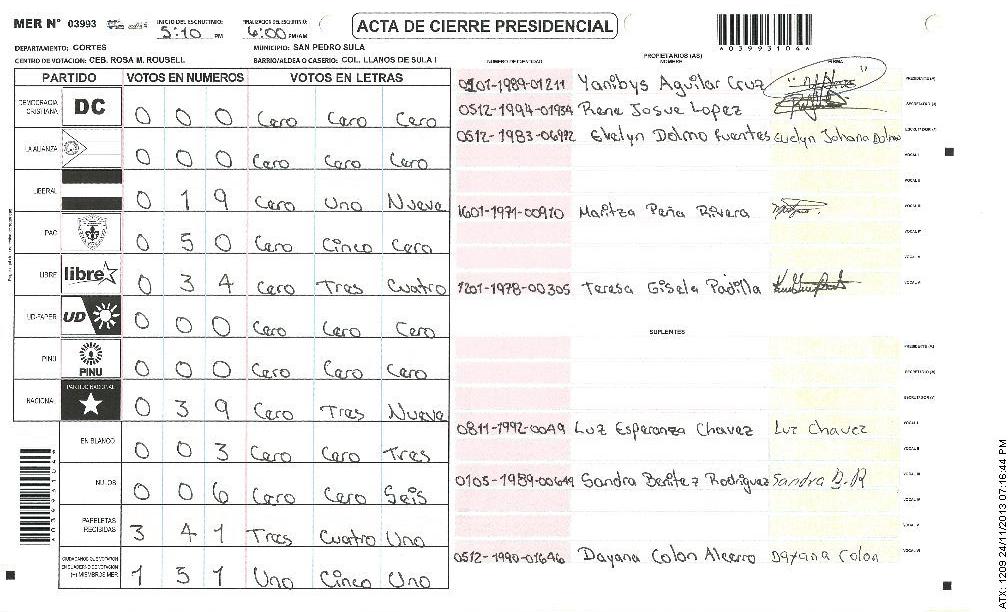 MER Nº 03993 INICIO DEL ESCRUTINIO: 5:10 PM FINALIZACION DEL ESCRUTINIO: 6:00 PM
ACTA DE CIERRE PRESIDENCIAL
DEPARTAMENTO: CORTES MUNICIPIO: SAN PEDRO SULA
CENTRO DE VOTACION: CEB. ROSA M. ROUSELL BARRIO/ALDEA O CASERIO: COL. LLANOS DE SULA I
PARTIDO VOTOS EN NUMEROS VOTOS EN LETRAS
DEMOCRACIA CRISTIANA DC 0 0 0 Cero Cero Cero
LA ALIANZA 0 0 0 Cero Cero Cero
LIBERAL 0 1 9 Cero Uno Nueve
PAC 0 5 0 Cero Cinco Cero
LIBRE libre 0 3 4 Cero Tres Cuatro
UD-FAPER UD 0 0 0 Cero Cero Cero
PINU PINU 0 0 0 Cero Cero Cero
NACIONAL PARTIDO NACIONAL 0 3 9 Cero Tres Nueve
EN BLANCO 0 0 3 Cero Cero Tres
NULOS 0 0 6 Cero Cero Seis
PAPELETAS RECIBIDAS 3 4 1 Tres Cuatro Uno
1 5 1 Uno Cinco Uno
PROPIETARIOS (AS)
NUMERO DE IDENTIDAD NOMBRE FIRMA
0201-1989-01211 Yanibys Aguilar Cruz PRESIDENTE (A)
0512-1994-01934 Rene Josue Lopez SECRETARIO (A)
Evelyn Delmo Fuentes Evelyn Johana Delmo ESCRUTADOR (A)
VOCAL I
VOCAL II
1601-1971-00910 Maritza Peña Rivera VOCAL III
VOCAL IV
VOCAL V
1201-1978-00305 Teresa Gisela Padilla VOCAL VI
SUPLENTES
PRESIDENTE (A)
SECRETARIO (A)
ESCRUTADOR (A)
0811-1992-0049 Luz Esperanza Chavez Luz Chavez VOCAL I
VOCAL II
Sandra Benitez Rodriguez Sandra B.R VOCAL III
VOCAL IV
VOCAL V
0512-1990-01646 Dayana Colon Dayana Colon VOCAL VI
ATX: 1209 24/11/2013 07:16:44 PM